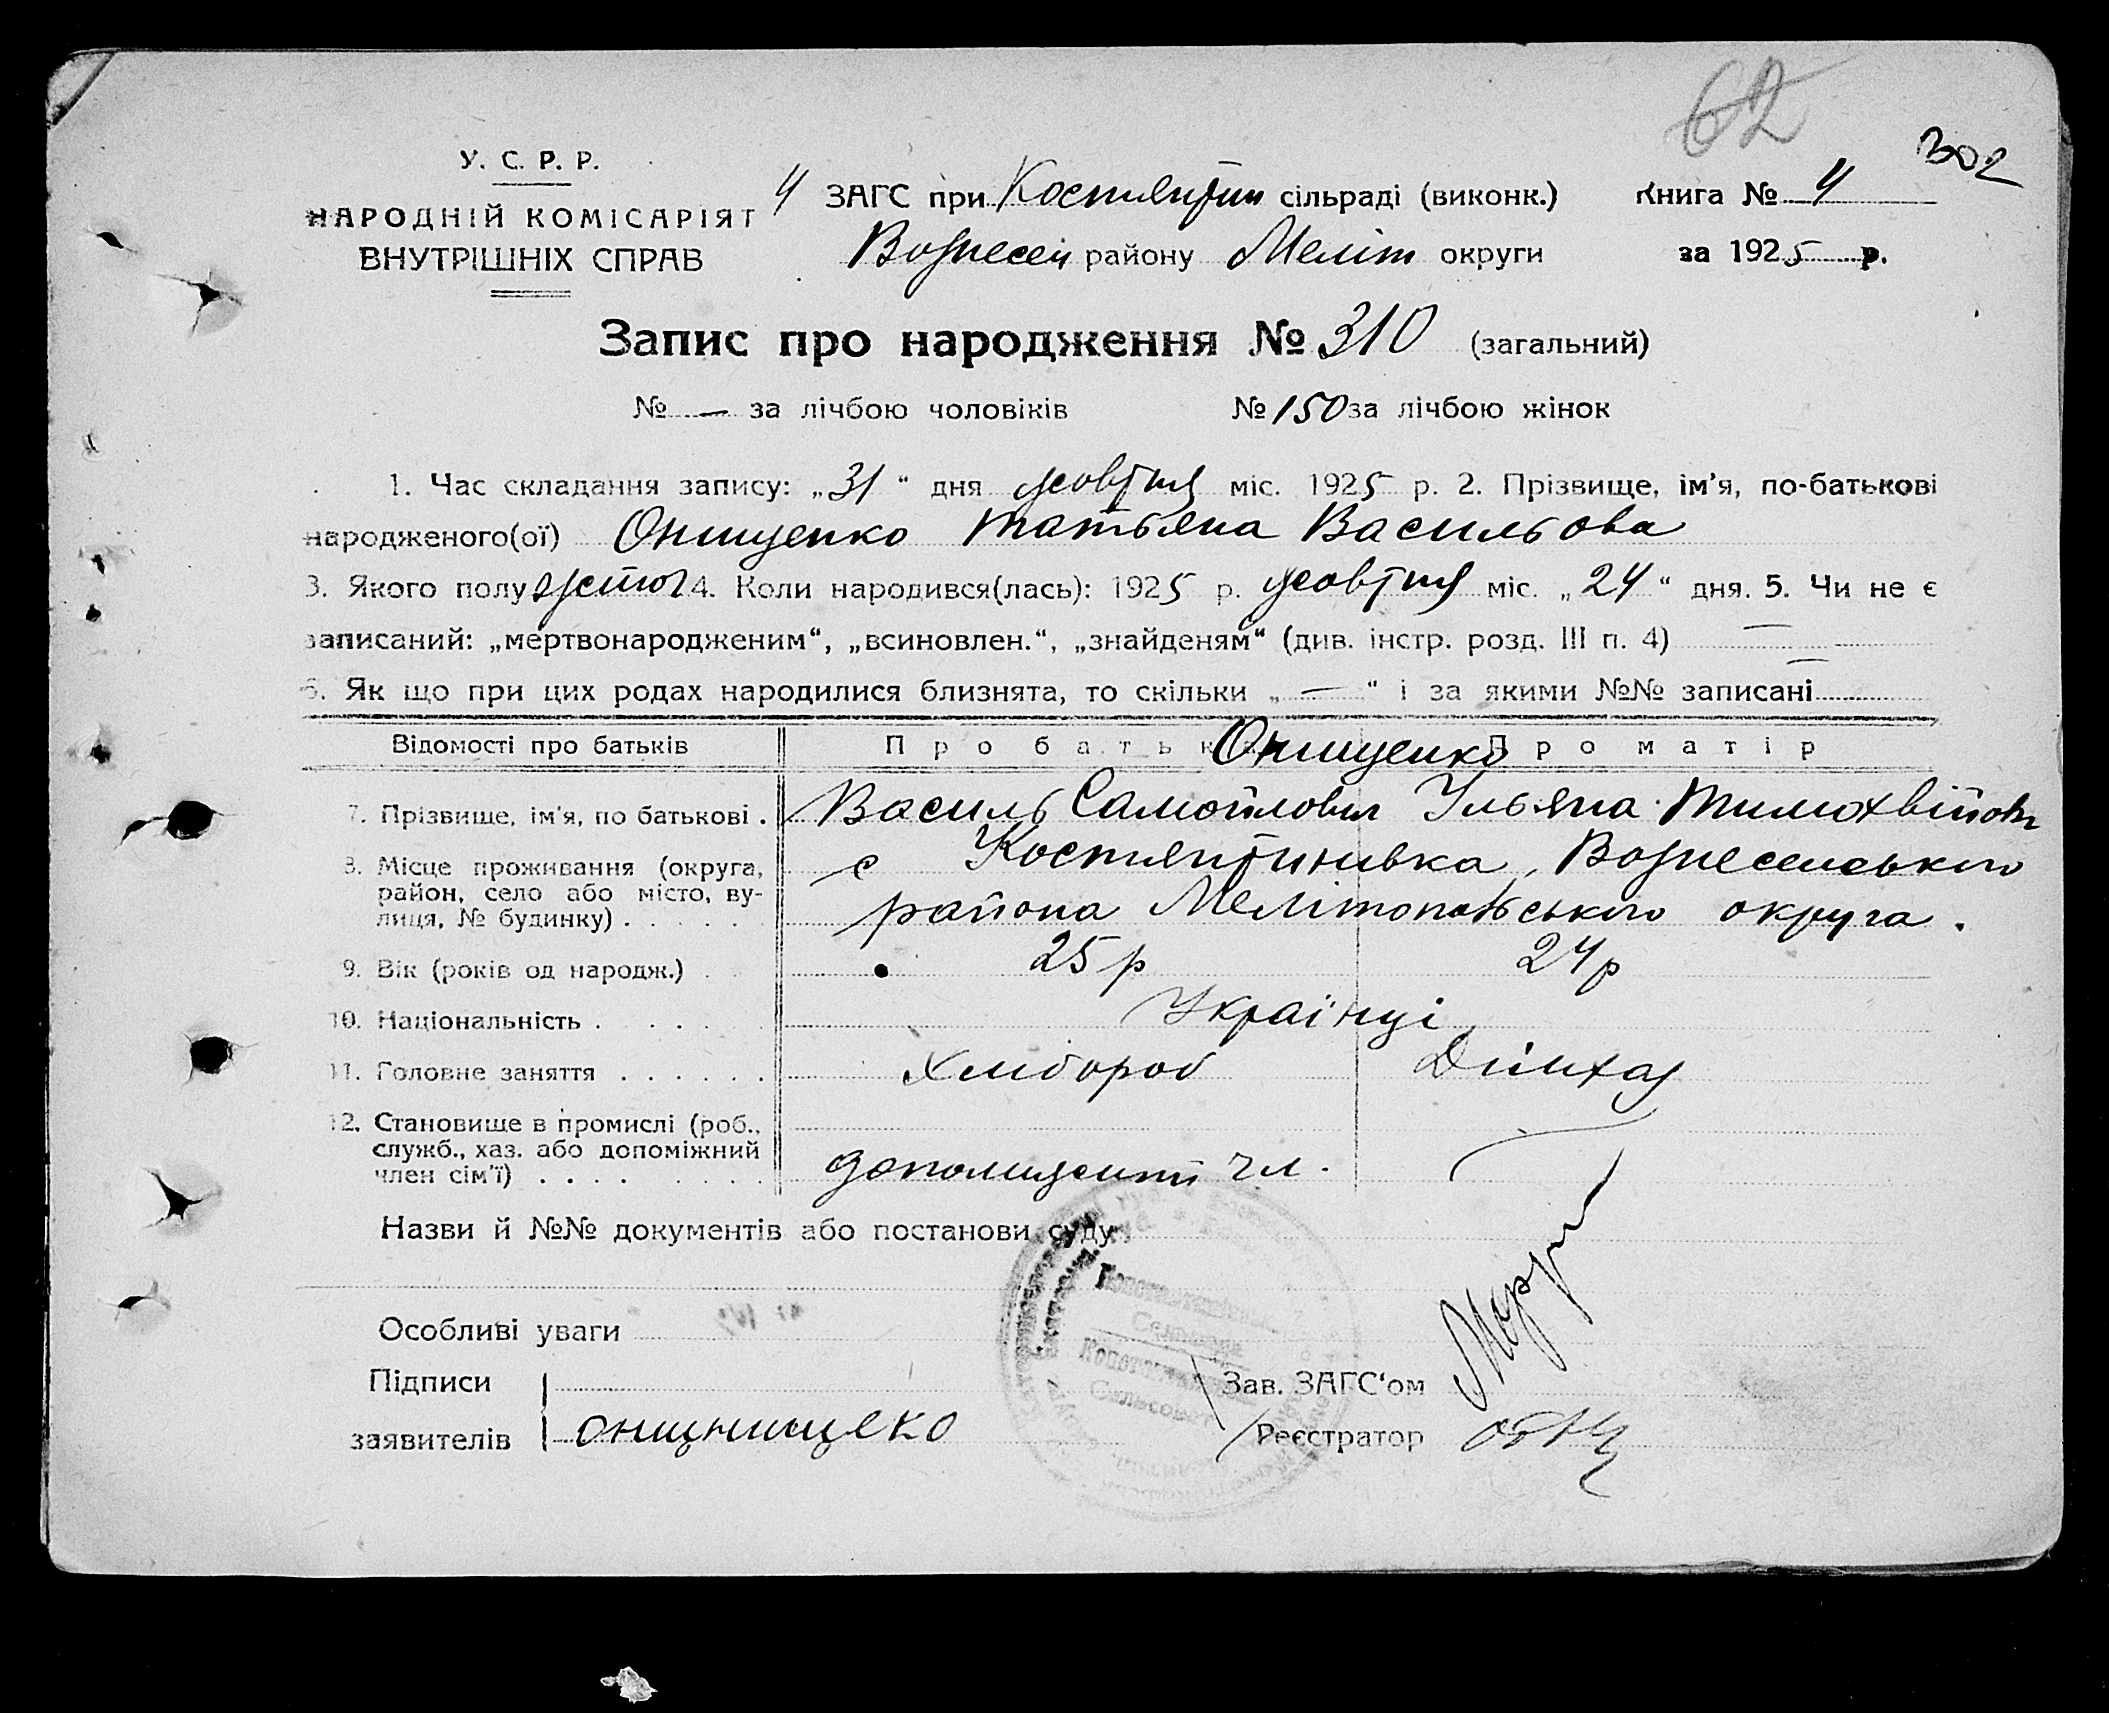 62
302
У. С. Р. Р.
НАРОДНІЙ КОМІСАРІЯТ
ВНУТРІШНІХ СПРАВ
4 ЗАГС при Костянтин сільраді (виконк.) Книга № 4
Вознесен району Меліт округи за 1925 р.
Запис про народження № 310 (загальний)
№ — за лічбою чоловіків № 150 за лічбою жінок
1. Час складання запису: „31“ дня жовтня міс. 1925 р. 2. Прізвище, ім'я, по-батькові
народженого(ої) Онищенко Татьяна Васильова
3. Якого полу 4. Коли народився(лась): 1925 р. жовтня міс. „24“ дня. 5. Чи не є
записаний: „мертвонародженим“, „всиновлен.“, „знайденям“ (див. інстр. розд. III п. 4) —
6. Як що при цих родах народилися близнята, то скільки „—“ і за якими №№ записані —
Відомості про батьків Про батька Онищенко Про матір
7. Прізвище, ім'я, по батькові . Василь Самойлович Ульяна Тимохвійовн
8. Місце проживання (округа, с Костянтинивка, Вознесенського
район, село або місто, ву-
лиця, № будинку) . района Мелітопольського округа.
9. Вік (років од народж.) . 25 р 24 р
10. Національність . Українці
11. Головне заняття . Хлибороб Дімхаз
12. Становище в промислі (роб.,
служб., хаз. або допоміжний
член сім'ї) . допомижний чл.
Назви й №№ документів або постанови суду
Особливі уваги
Підписи Зав. ЗАГС'ом
заявителів онищнищеко Реєстратор